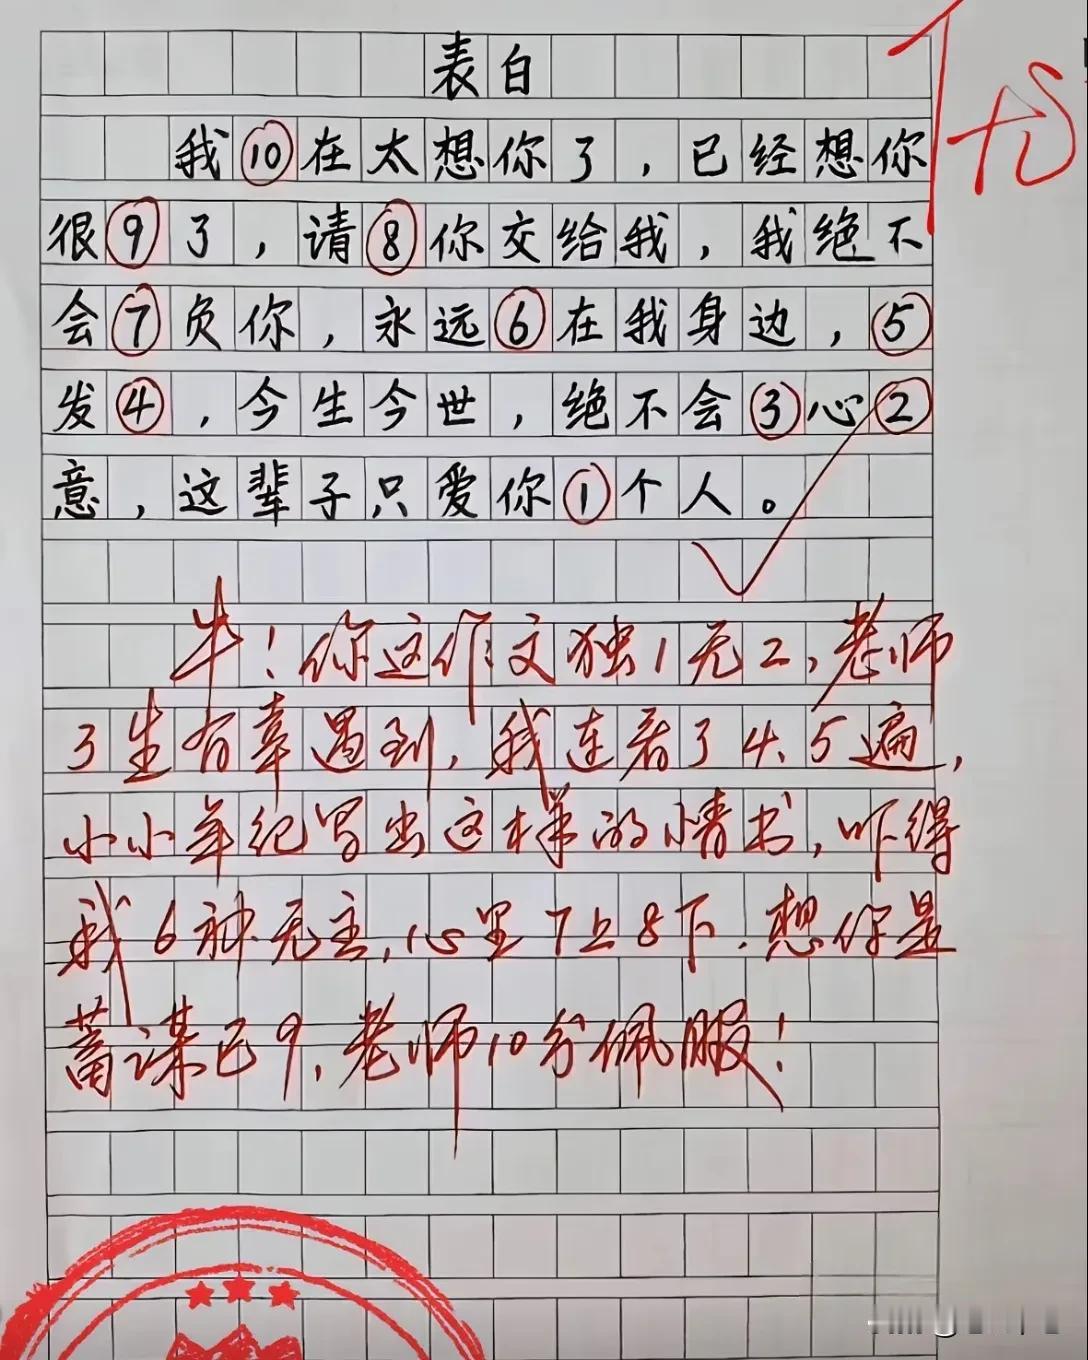 表白
我⑩在太想你了，已经想你
很⑨了，请⑧你交给我，我绝不
会⑦负你，永远⑥在我身边，⑤
发④，今生今世，绝不会③心②
意，这辈子只爱你①个人。
优
牛！你这作文独1无2，老师
3生有幸遇到，我连看了4、5遍，
小小年纪写出这样的情书，吓得
我6神无主，心里7上8下．想你是
蓄谋已9，老师10分佩服！